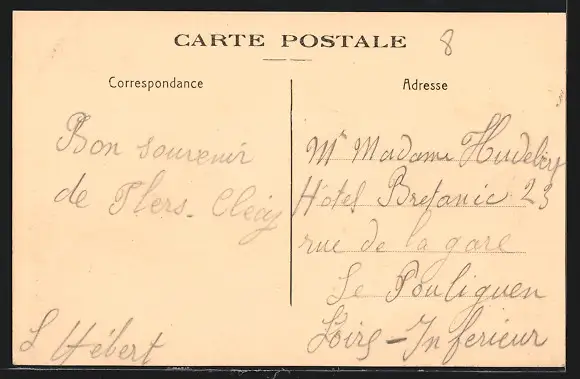 CARTE POSTALE
8
Correspondance
Adresse
Bon souvenir
de Flers. Clécy
L Hébert
Mr Madame Hudebert
Hôtel Bretanic 23
rue de la gare
Le Pouliguen
Loire-Inferieur